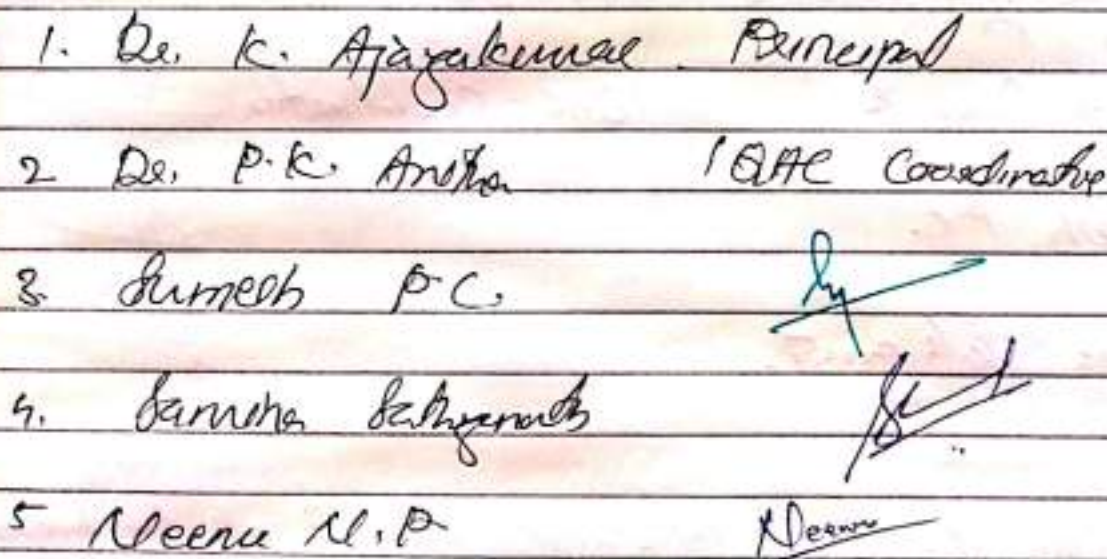 1. Dr. K. Ajayakumar. Principal
2 Dr. P.K. Anitha IQAC Coordinator
3. Sumesh P.C.
4. Samitha Sathyanath
5 Neenu N.P Neenu